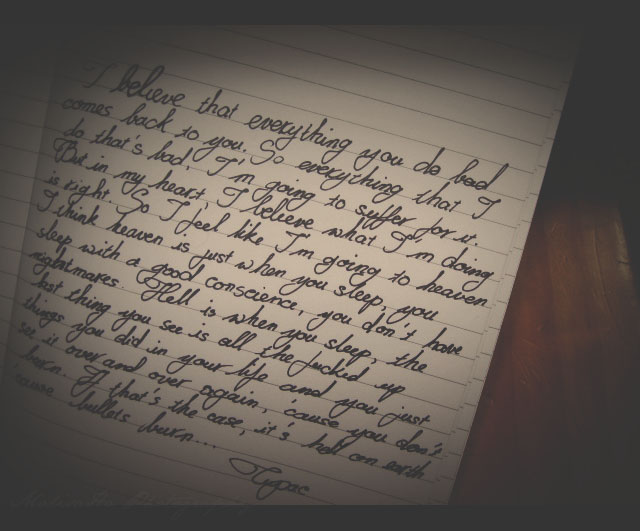 I believe that everything you do bad
comes back to you. So everything that I
do that's bad, I'm going to suffer for it.
But in my heart, I believe what I'm doing
is right. So I feel like I'm going to heaven.
I think heaven is just when you sleep, you
sleep with a good conscience, you don't have
nightmares. Hell is when you sleep, the
last thing you see is all the fucked up
things you did in your life and you just
see it over and over again, 'cause you don't
burn. If that's the case, it's hell on earth
'cause bullets burn...
Tupac
Photography